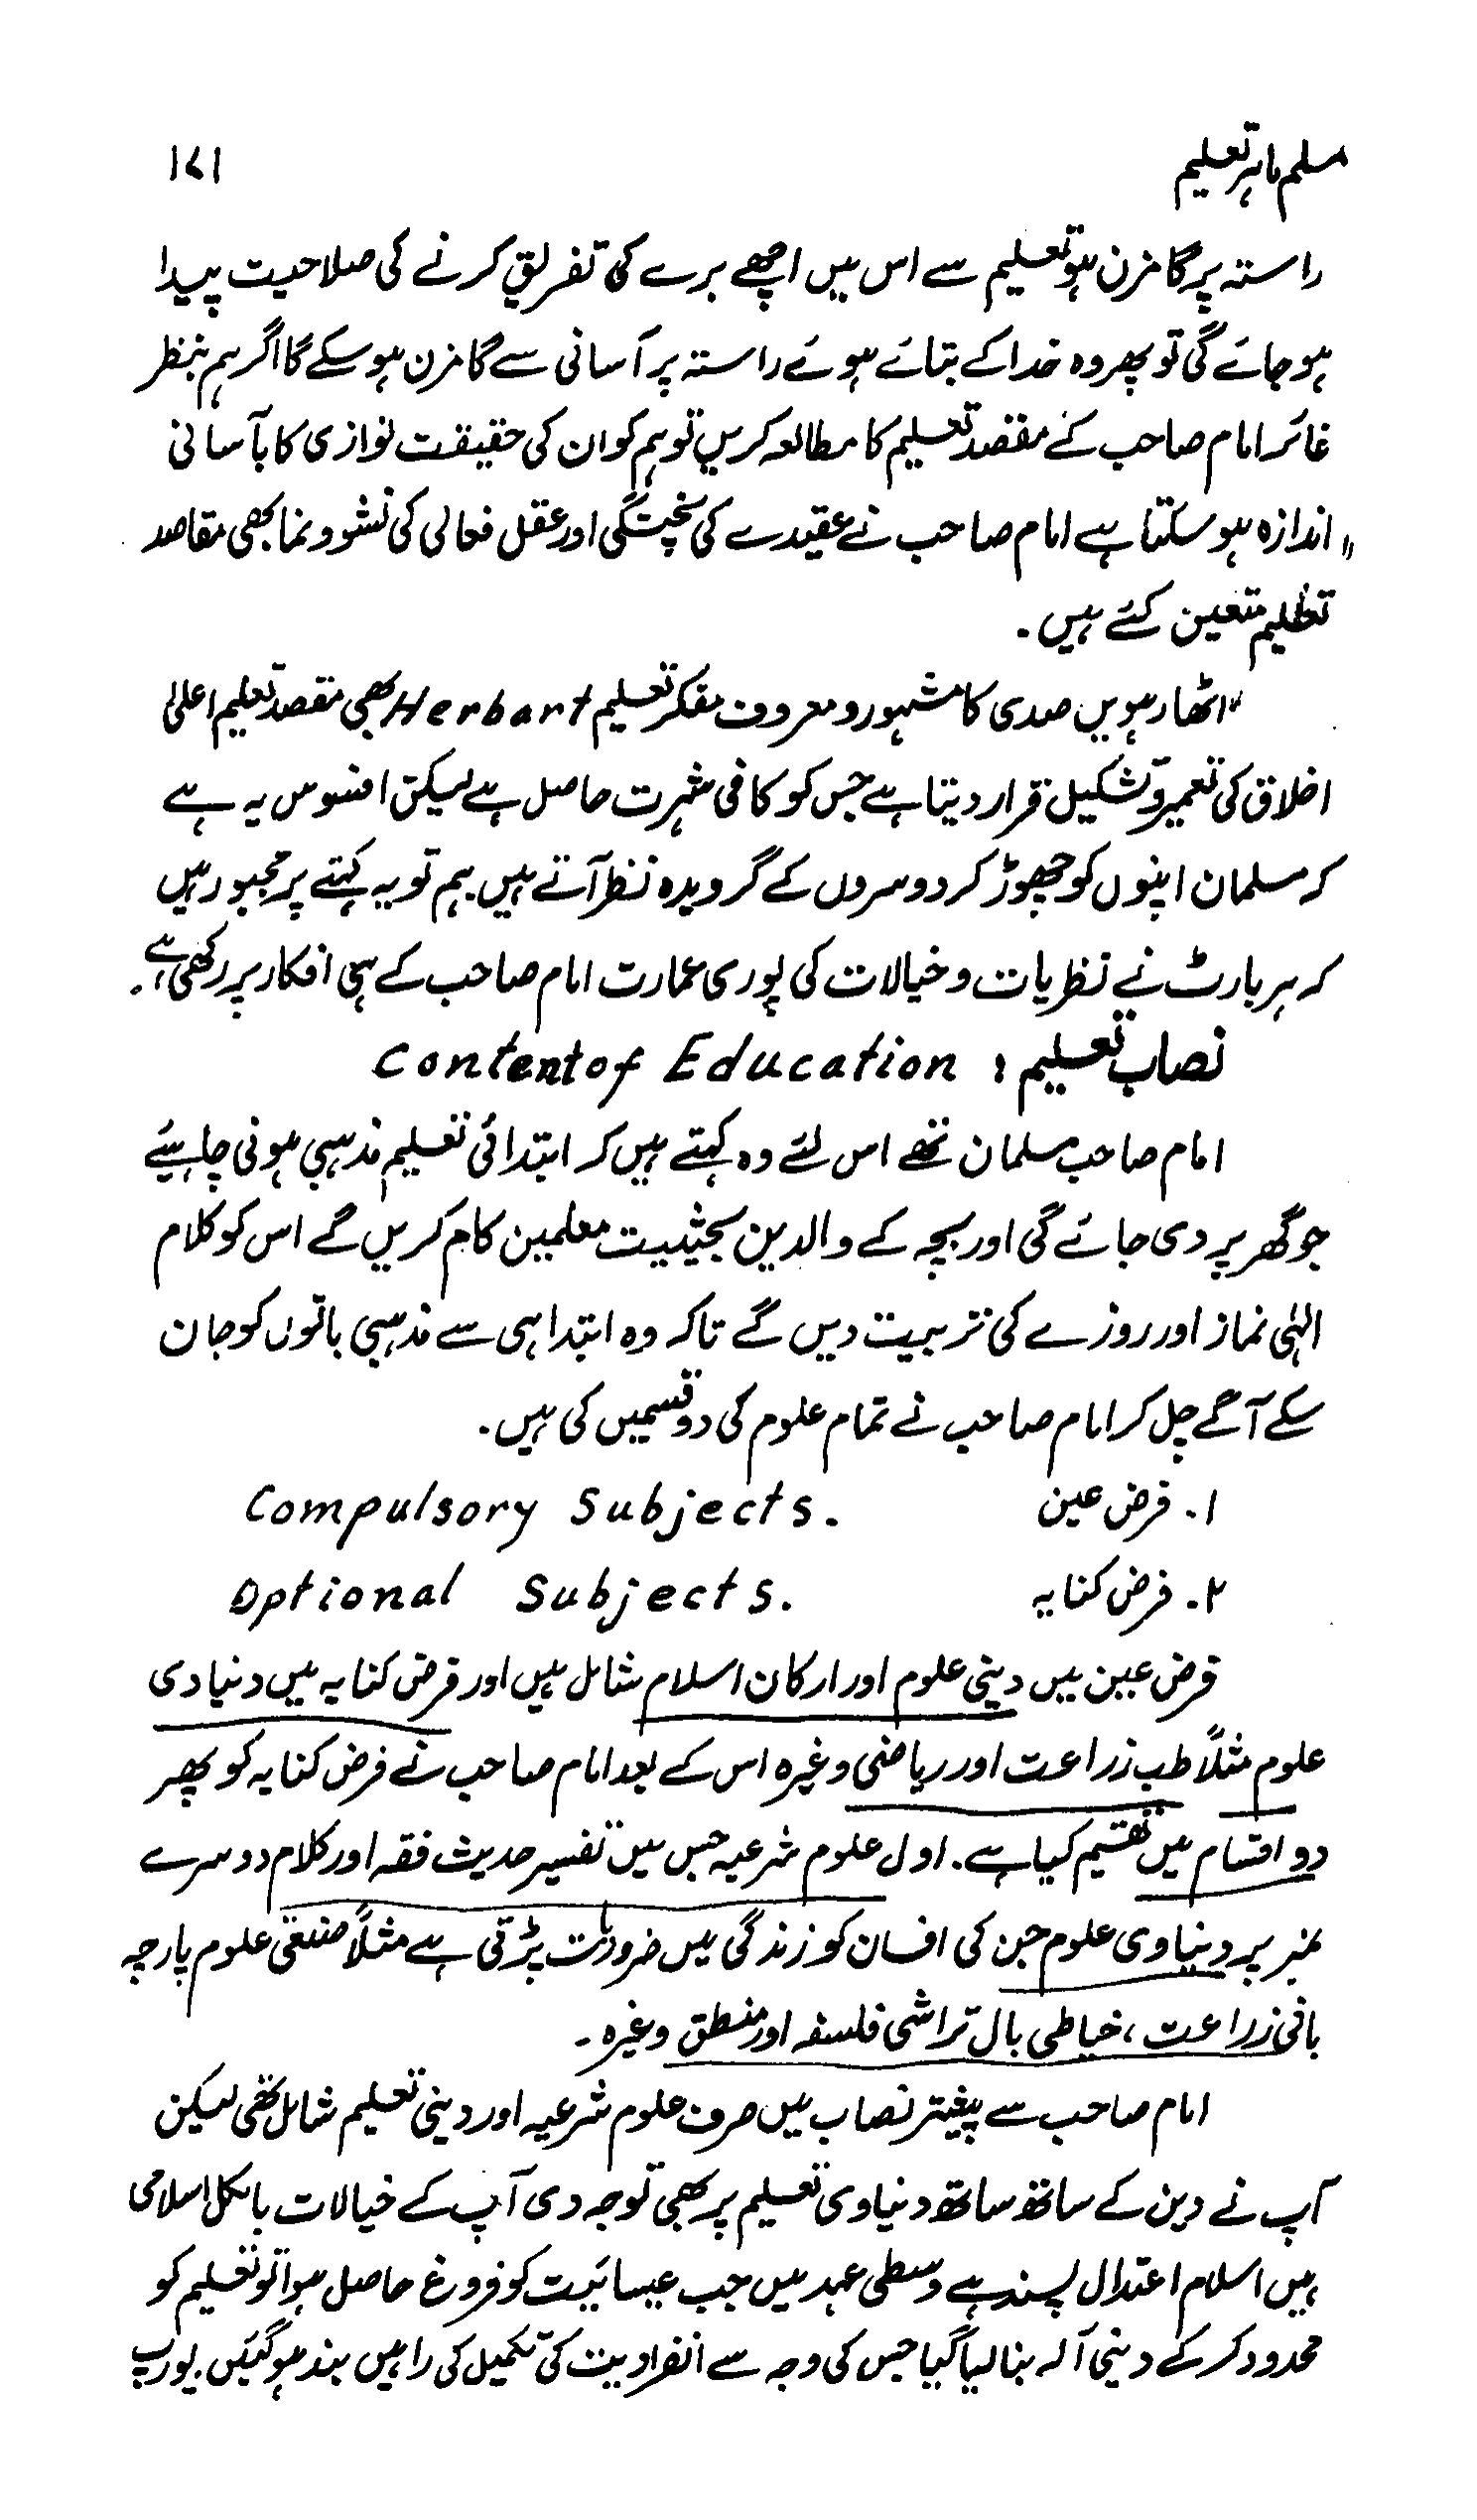 مسلم ماہر تعلیم
۱۷۱
راستہ پر گامزن ہو تعلیم سے اس میں اچھے برے کی تفریق کرنے کی صلاحیت پیدا
ہو جائے گی تو پھر وہ خدا کے بتائے ہوئے راستہ پر آسانی سے گامزن ہو سکے گا اگر ہم بنظر
غائر امام صاحب کے مقصد تعلیم کا مطالعہ کریں تو ہم کو ان کی حقیقت نوازی کا بآسانی
اندازہ ہو سکتا ہے امام صاحب نے عقیدے کی پختگی اور عقل فعالی کی نشو و نما بھی مقاصد
تعلیم متعین کئے ہیں۔
"اٹھارہویں صدی کا مشہور و معروف مفکر تعلیم Herbart بھی مقصد تعلیم اعلیٰ
اخلاق کی تعمیر و تشکیل قرار دیتا ہے جس کو کافی شہرت حاصل ہے لیکن افسوس یہ ہے
کہ مسلمان اپنوں کو چھوڑ کر دوسروں کے گرویدہ نظر آتے ہیں ہم تو یہ کہتے پر مجبور ہیں
کہ ہربارٹ نے نظریات و خیالات کی پوری عمارت امام صاحب کے ہی افکار پر رکھی ہے۔
نصاب تعلیم : Content of Education
امام صاحب مسلمان تھے اس لئے وہ کہتے ہیں کہ ابتدائی تعلیم مذہبی ہونی چاہیئے
جو گھر پر دی جائے گی اور بچہ کے والدین بحیثیت معلمین کام کریں گے اس کو کلام
الہٰی نماز اور روزے کی تربیت دیں گے تاکہ وہ ابتدا ہی سے مذہبی باتوں کو جان
سکے آگے چل کر امام صاحب نے تمام علوم کی دو قسمیں کی ہیں۔
۱۔ فرض عین Compulsory Subjects.
۲۔ فرض کفایہ Optional Subjects.
فرض عین میں دینی علوم اور ارکان اسلام شامل ہیں اور فرض کفایہ میں دنیا دی
علوم مثلاً طب زراعت اور ریاضی وغیرہ اس کے بعد امام صاحب نے فرض کفایہ کو پھر
دو اقسام میں تقسیم کیا ہے۔ اول علوم شرعیہ جس میں تفسیر حدیث فقہ اور کلام دوسرے
نمبر پر دنیاوی علوم جن کی انسان کو زندگی میں ضرورت پڑتی ہے مثلاً صنعتی علوم پارچہ
بافی زراعت، خیاطی بال تراشی فلسفہ اور منطق وغیرہ۔
امام صاحب سے پیشتر نصاب میں صرف علوم شرعیہ اور دینی تعلیم شامل تھی لیکن
آپ نے دین کے ساتھ ساتھ دنیاوی تعلیم پر بھی توجہ دی آپ کے خیالات بالکل اسلامی
ہیں اسلام اعتدال پسند ہے وسطی عہد میں جب عیسائیت کو فروغ حاصل ہوا تو تعلیم کو
محدود کر کے دینی آلہ بنا لیا گیا جس کی وجہ سے انفرادیت کی تکمیل کی راہیں بند ہو گئیں۔ یورپ